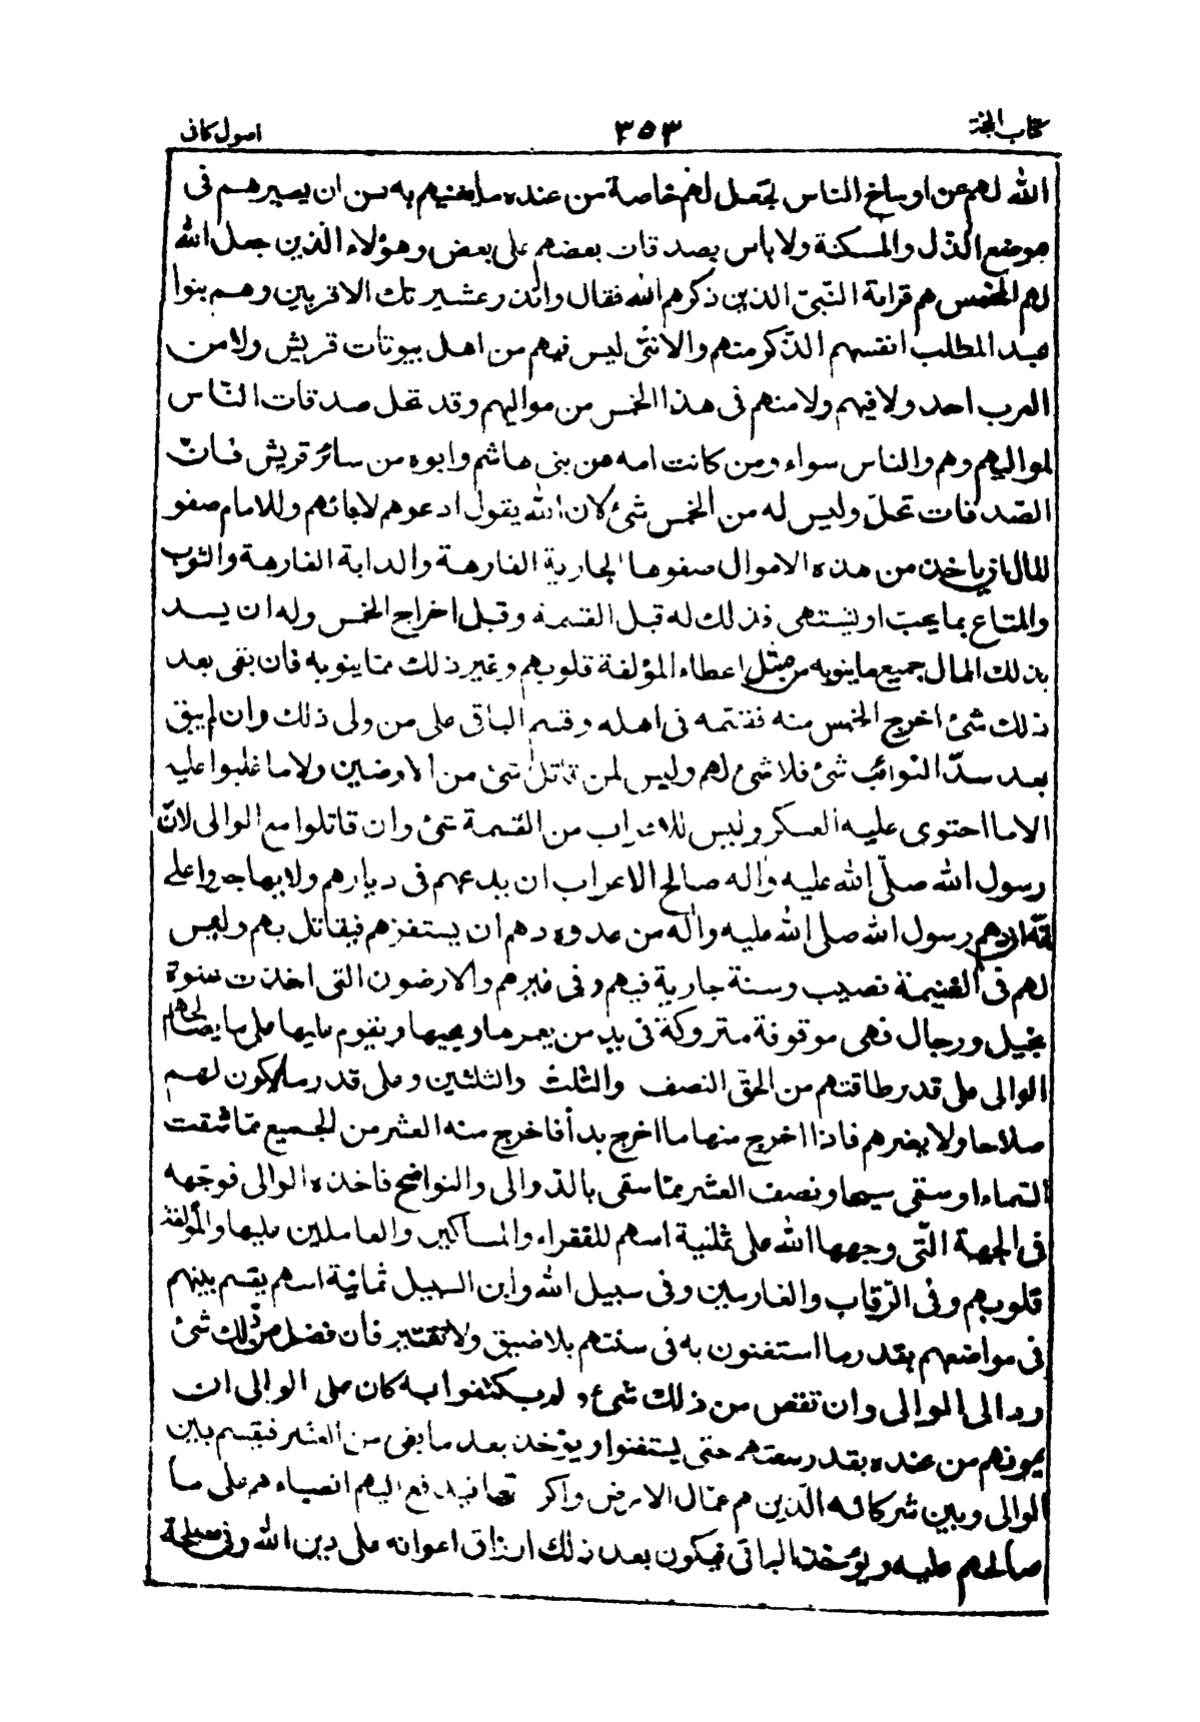 كتاب الحجة
٣٥٣
اصول كافى
الله لهم عن اوساخ الناس فجعل لهم خاصة من عنده ما يغنيهم به عن ان يصيرهم فى
موضع الذّل والمسكنة ولا باس بصدقات بعضهم على بعض وهؤلاء الذين جعل الله
لهم الخمس هم قرابة النّبىّ الذين ذكرهم الله فقال وانذر عشيرتك الاقربين وهم بنوا
عبد المطلب انفسهم الذّكر منهم والانثى ليس فيهم من اهل بيوتات قريش ولا من
العرب احد ولا فيهم ولا منهم فى هذا الخمس من مواليهم وقد تحل صدقات النّاس
لمواليهم وهم والناس سواء ومن كانت امه من بنى هاشم وابوه من سائر قريش فانّ
الصّدقات تحلّ وليس له من الخمس شئ لان الله يقول ادعوهم لابائهم وللامام صفو
المال ان ياخذ من هذه الاموال صفوها الجارية الفارهة والدابة الفارهة والثوب
والمتاع بما يحبّ او يشتهى فذلك له قبل القسمة وقبل اخراج الخمس وله ان يسد
بذلك المال جميع ما ينوبه من مثل اعطاء المؤلفة قلوبهم وغير ذلك ممّا ينوبه فان بقى بعد
ذلك شئ اخرج الخمس منه فقسّمه فى اهله وقسم الباقى على من ولى ذلك وان لم يبق
بعد سدّ النوائب شئ فلا شئ لهم وليس لمن قاتل شئ من الارضين ولا ما غلبوا عليه
الا ما احتوى عليه العسكر وليس للاعراب من القسمة شئ وان قاتلوا مع الوالى لانّ
رسول الله صلّى الله عليه واله صالح الاعراب ان يدعهم فى ديارهم ولا يهاجروا على
انّه ان دهم رسول الله صلى الله عليه واله من عدوه دهم ان يستفزهم فيقاتل بهم وليس
لهم فى الغنيمة نصيب وسنة جارية فيهم وفى غيرهم والارضون التى اخذت عنوة
بخيل ورجال فهى موقوفة متروكة فى يد من يعمرها ويحييها ويقوم عليها على ما يصالحهم
الوالى على قدر طاقتهم من الحقّ النصف والثلث والثلثين وعلى قدر ما يكون لهم
صلاحا ولا يضرهم فاذا اخرج منها ما اخرج بدأ فاخرج منه العشر من الجميع ممّا سقت
السّماء او سقى سيحا ونصف العشر ممّا سقى بالدّوالى والنواضح فاخذه الوالى فوجّهه
فى الجهة الّتى وجهها الله على ثمانية اسهم للفقراء والمساكين والعاملين عليها والمؤلفة
قلوبهم وفى الرّقاب والغارمين وفى سبيل الله وابن السبيل ثمانية اسهم يقسم بينهم
فى مواضعهم بقدر ما استغنون به فى سنتهم بلا ضيق ولا تقتير فان فضل من ذلك شئ
رد الى الوالى وان نقص من ذلك شئ ولم يكتفوا به كان على الوالى ان
يمونهم من عنده بقدر سعتهم حتى يستغنوا ويؤخذ بعد ما بقى من العشر فيقسم بين
الوالى وبين شركائه الّذين هم عمّال الارض واكرتها فيدفع اليهم انصباءهم على ما
صالحهم عليه ويؤخذ الباقى فيكون بعد ذلك ارزاق اعوانه على دين الله وفى مصلحة